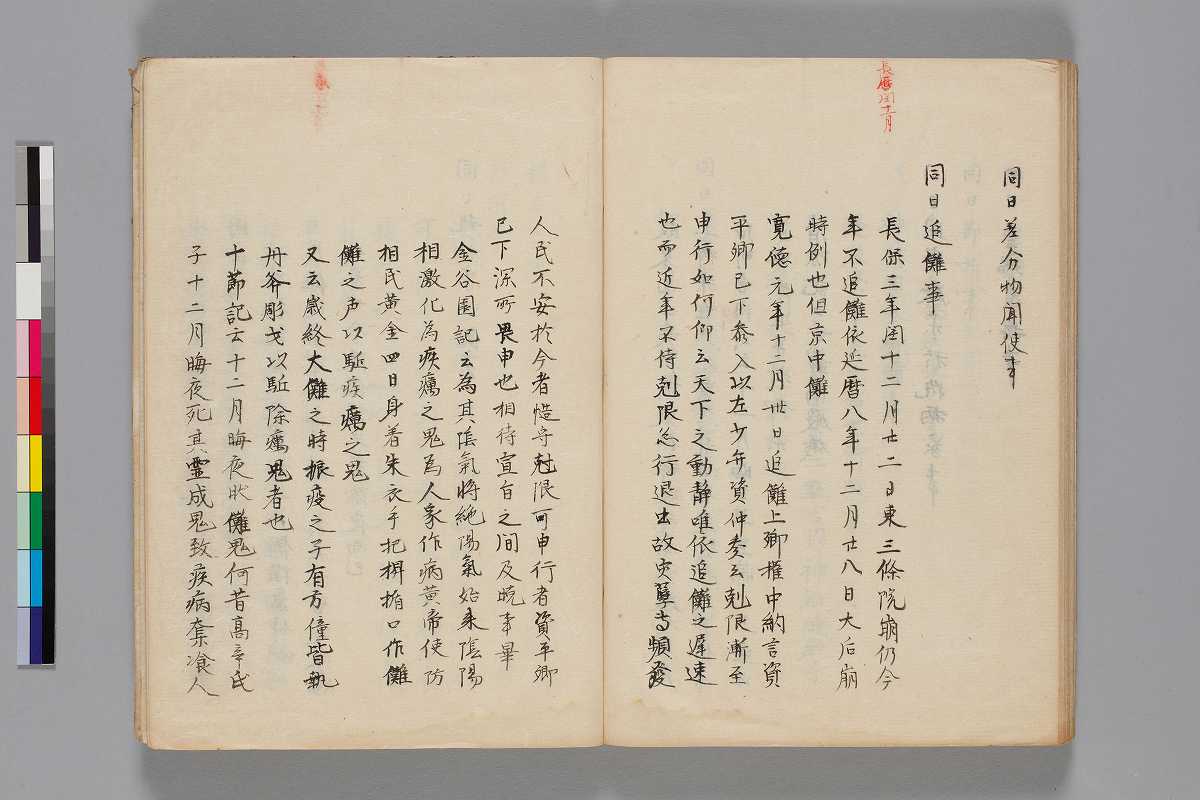 長暦閏十二月
同日差分物聞使事
同日追儺事
長保三年閏十二月廿二日東三條院崩仍今
年不追儺依延暦八年十二月廿八日大后崩
時例也但京中儺
寛徳元年十二月卅日追儺上卿権中納言資
平卿已下参入以左少弁資仲奏云剋限漸至
申行如何仰云天下之動静唯依追儺之遅速
也而近年不待剋限怱行退出故灾孽頻發
人民不安於今者慥守剋限可申行者資平卿
已下深所畏申也相待宣旨之間及晩事畢
金谷園記云為其陰氣将絶陽氣始来陰陽
相激化為疾癘之鬼為人家作病黄帝使防
相氏黄金四目身着朱衣手把桙楯口作儺
儺之声以駈疫癘之鬼
又云歳終大儺之時振疫之子有方僮皆執
丹斧彫戈以駈除癘鬼者也
十節記云十二月晦夜儺鬼何昔高辛氏
子十二月晦夜死其霊成鬼致疾病奪飡人